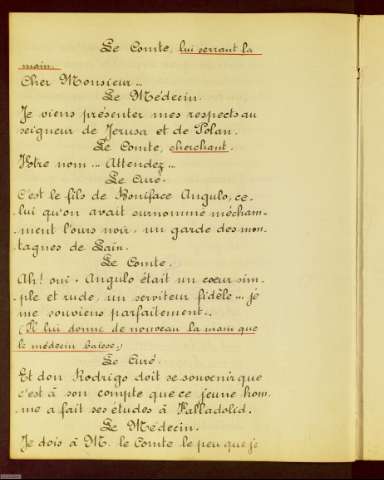 Le Comte, lui serrant la
main.
Cher Monsieur...
Le Médecin.
Je viens présenter mes respects au
seigneur de Jerusa et de Polan.
Le Comte, cherchant.
Votre nom... Attendez...
Le Curé.
C'est le fils de Boniface Angulo, ce-
lui qu'on avait surnommé mécham-
ment l'ours noir, un garde des mon-
tagnes de Lain.
Le Comte.
Ah! oui. Angulo était un cœur sim-
ple et rude, un serviteur fidèle... je
me souviens parfaitement..
(Il lui donne de nouveau la main que
le médecin baise.)
Le Curé
Et don Rodrigo doit se souvenir que
c'est à son compte que ce jeune hom-
me a fait ses études à Valladolid.
Le Médecin.
Je dois à M. le Comte le peu que je